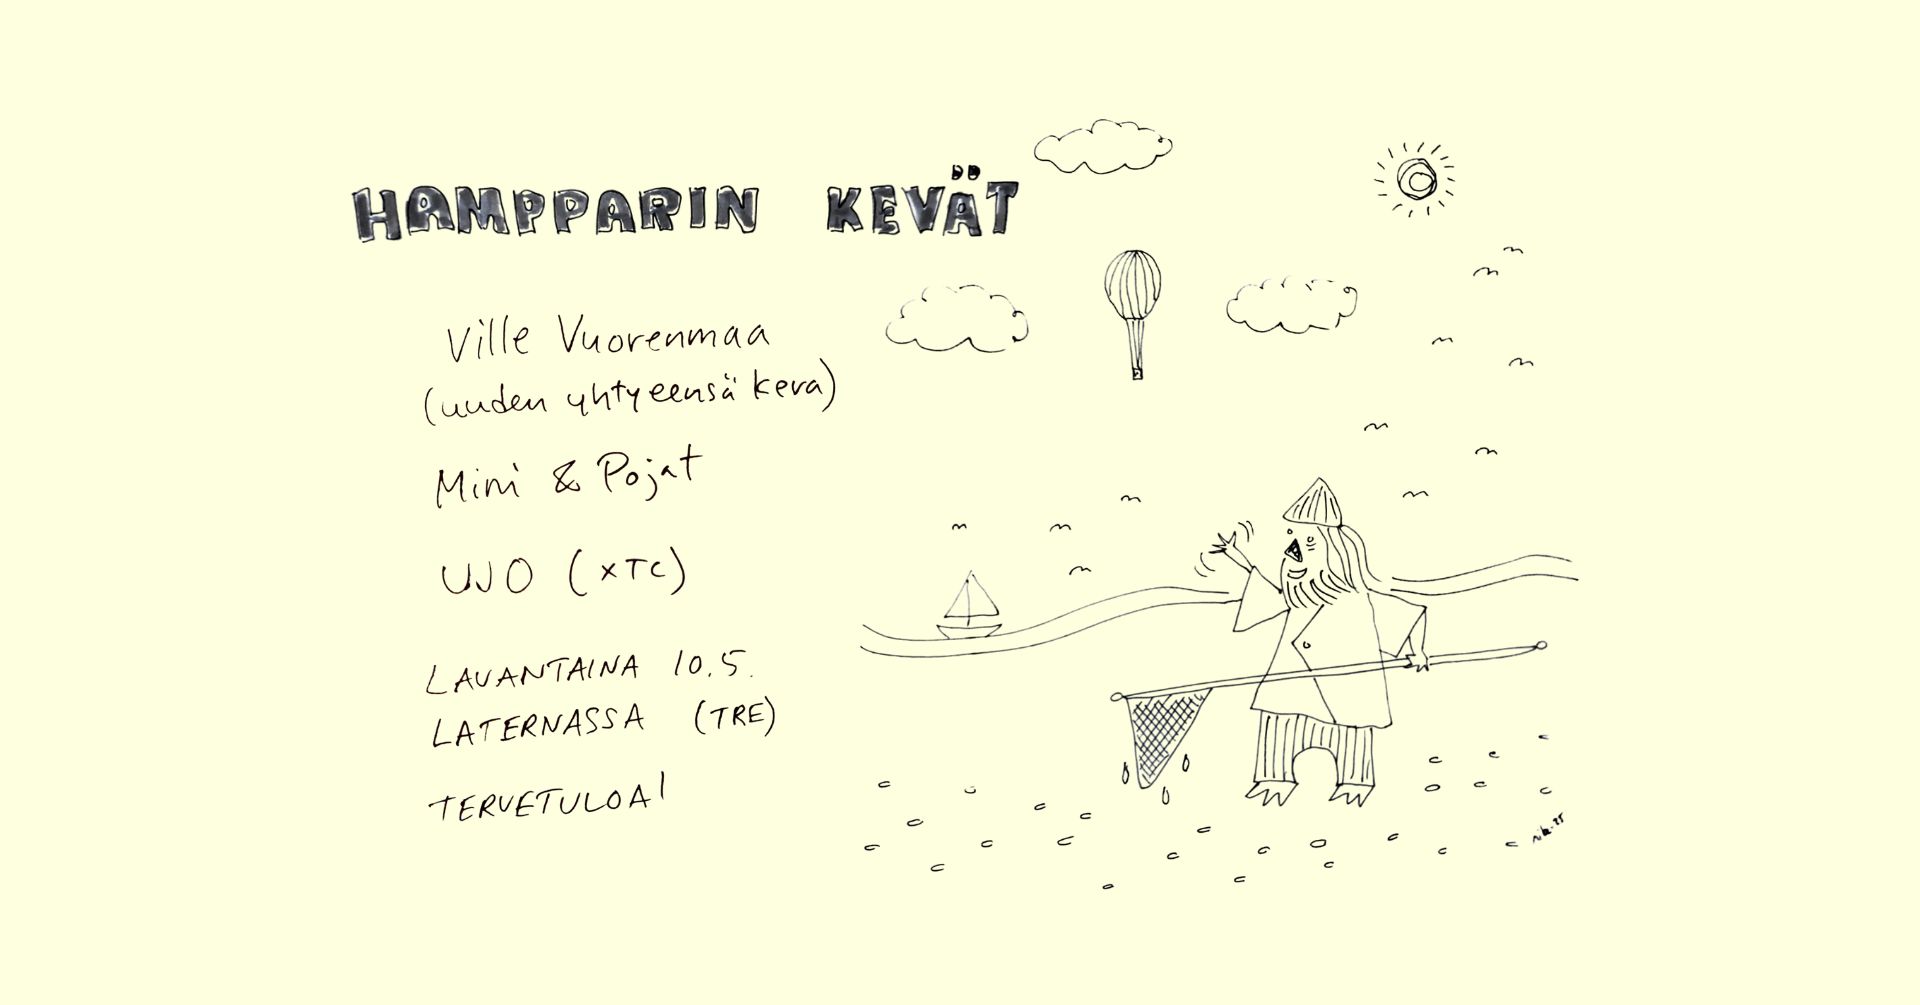 HAMPPARIN KEVÄT
Ville Vuorenmaa
(uuden yhtyeensä kera)
Mini & Pojat
UJO (XTC)
LAUANTAINA 10.5.
LATERNASSA (TRE)
TERVETULOA!